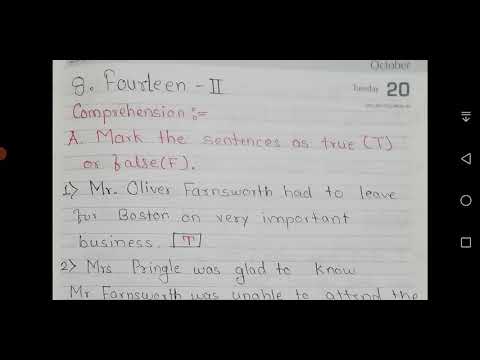 October
Tuesday 20
8. Fourteen - II
Comprehension :-
A. Mark the sentences as true (T)
or false(F).
1) Mr. Oliver Farnsworth had to leave
for Boston on very important
business. [T]
2) Mrs Pringle was glad to know
Mr Farnsworth was unable to attend the